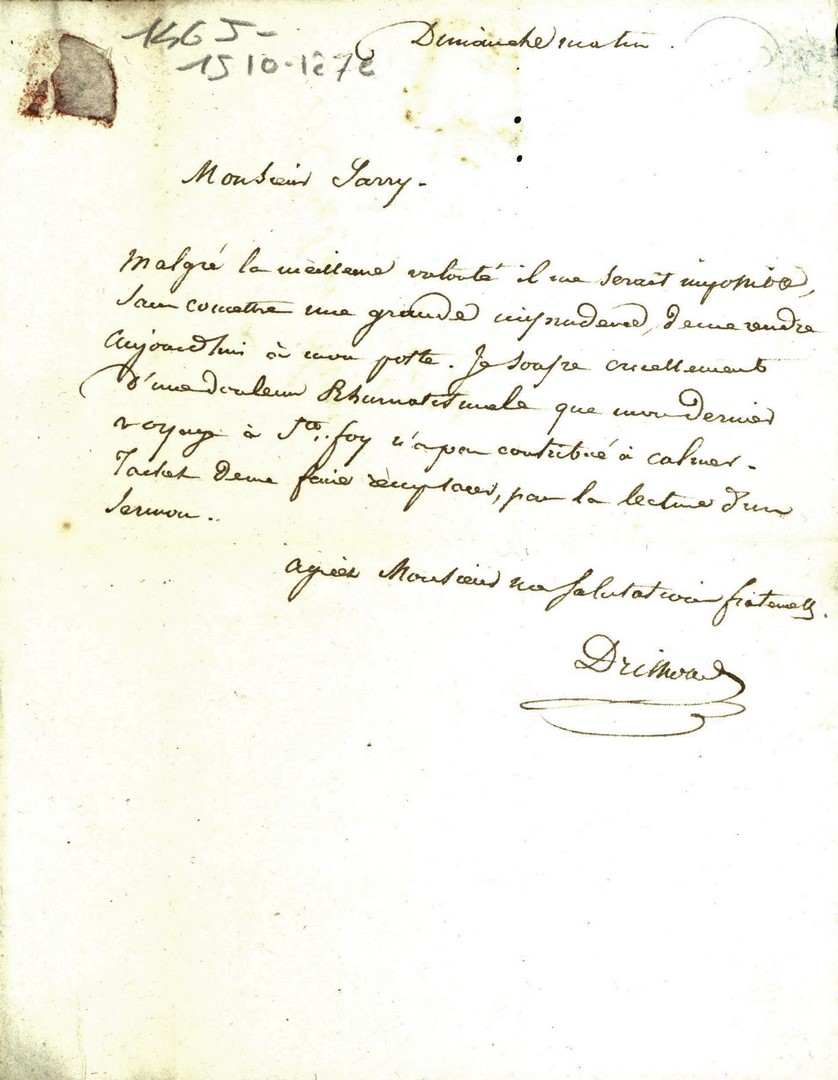 1465-
15 10-1872
Dimanche matin.
Monsieur Sarry-
Malgré la meilleure volonté il me serait impossible,
sans comettre une grande imprudence, de me rendre
aujourdhui à mon poste. Je soufre cruellement
d'une douleur Rhumatismale que mon dernier
voyage à Ste. foy n'a peu contribué à calmer.
Tachez de me faire remplacer, par la lecture d'un
sermon..
agréez Monsieur ma salutation fraternelle.